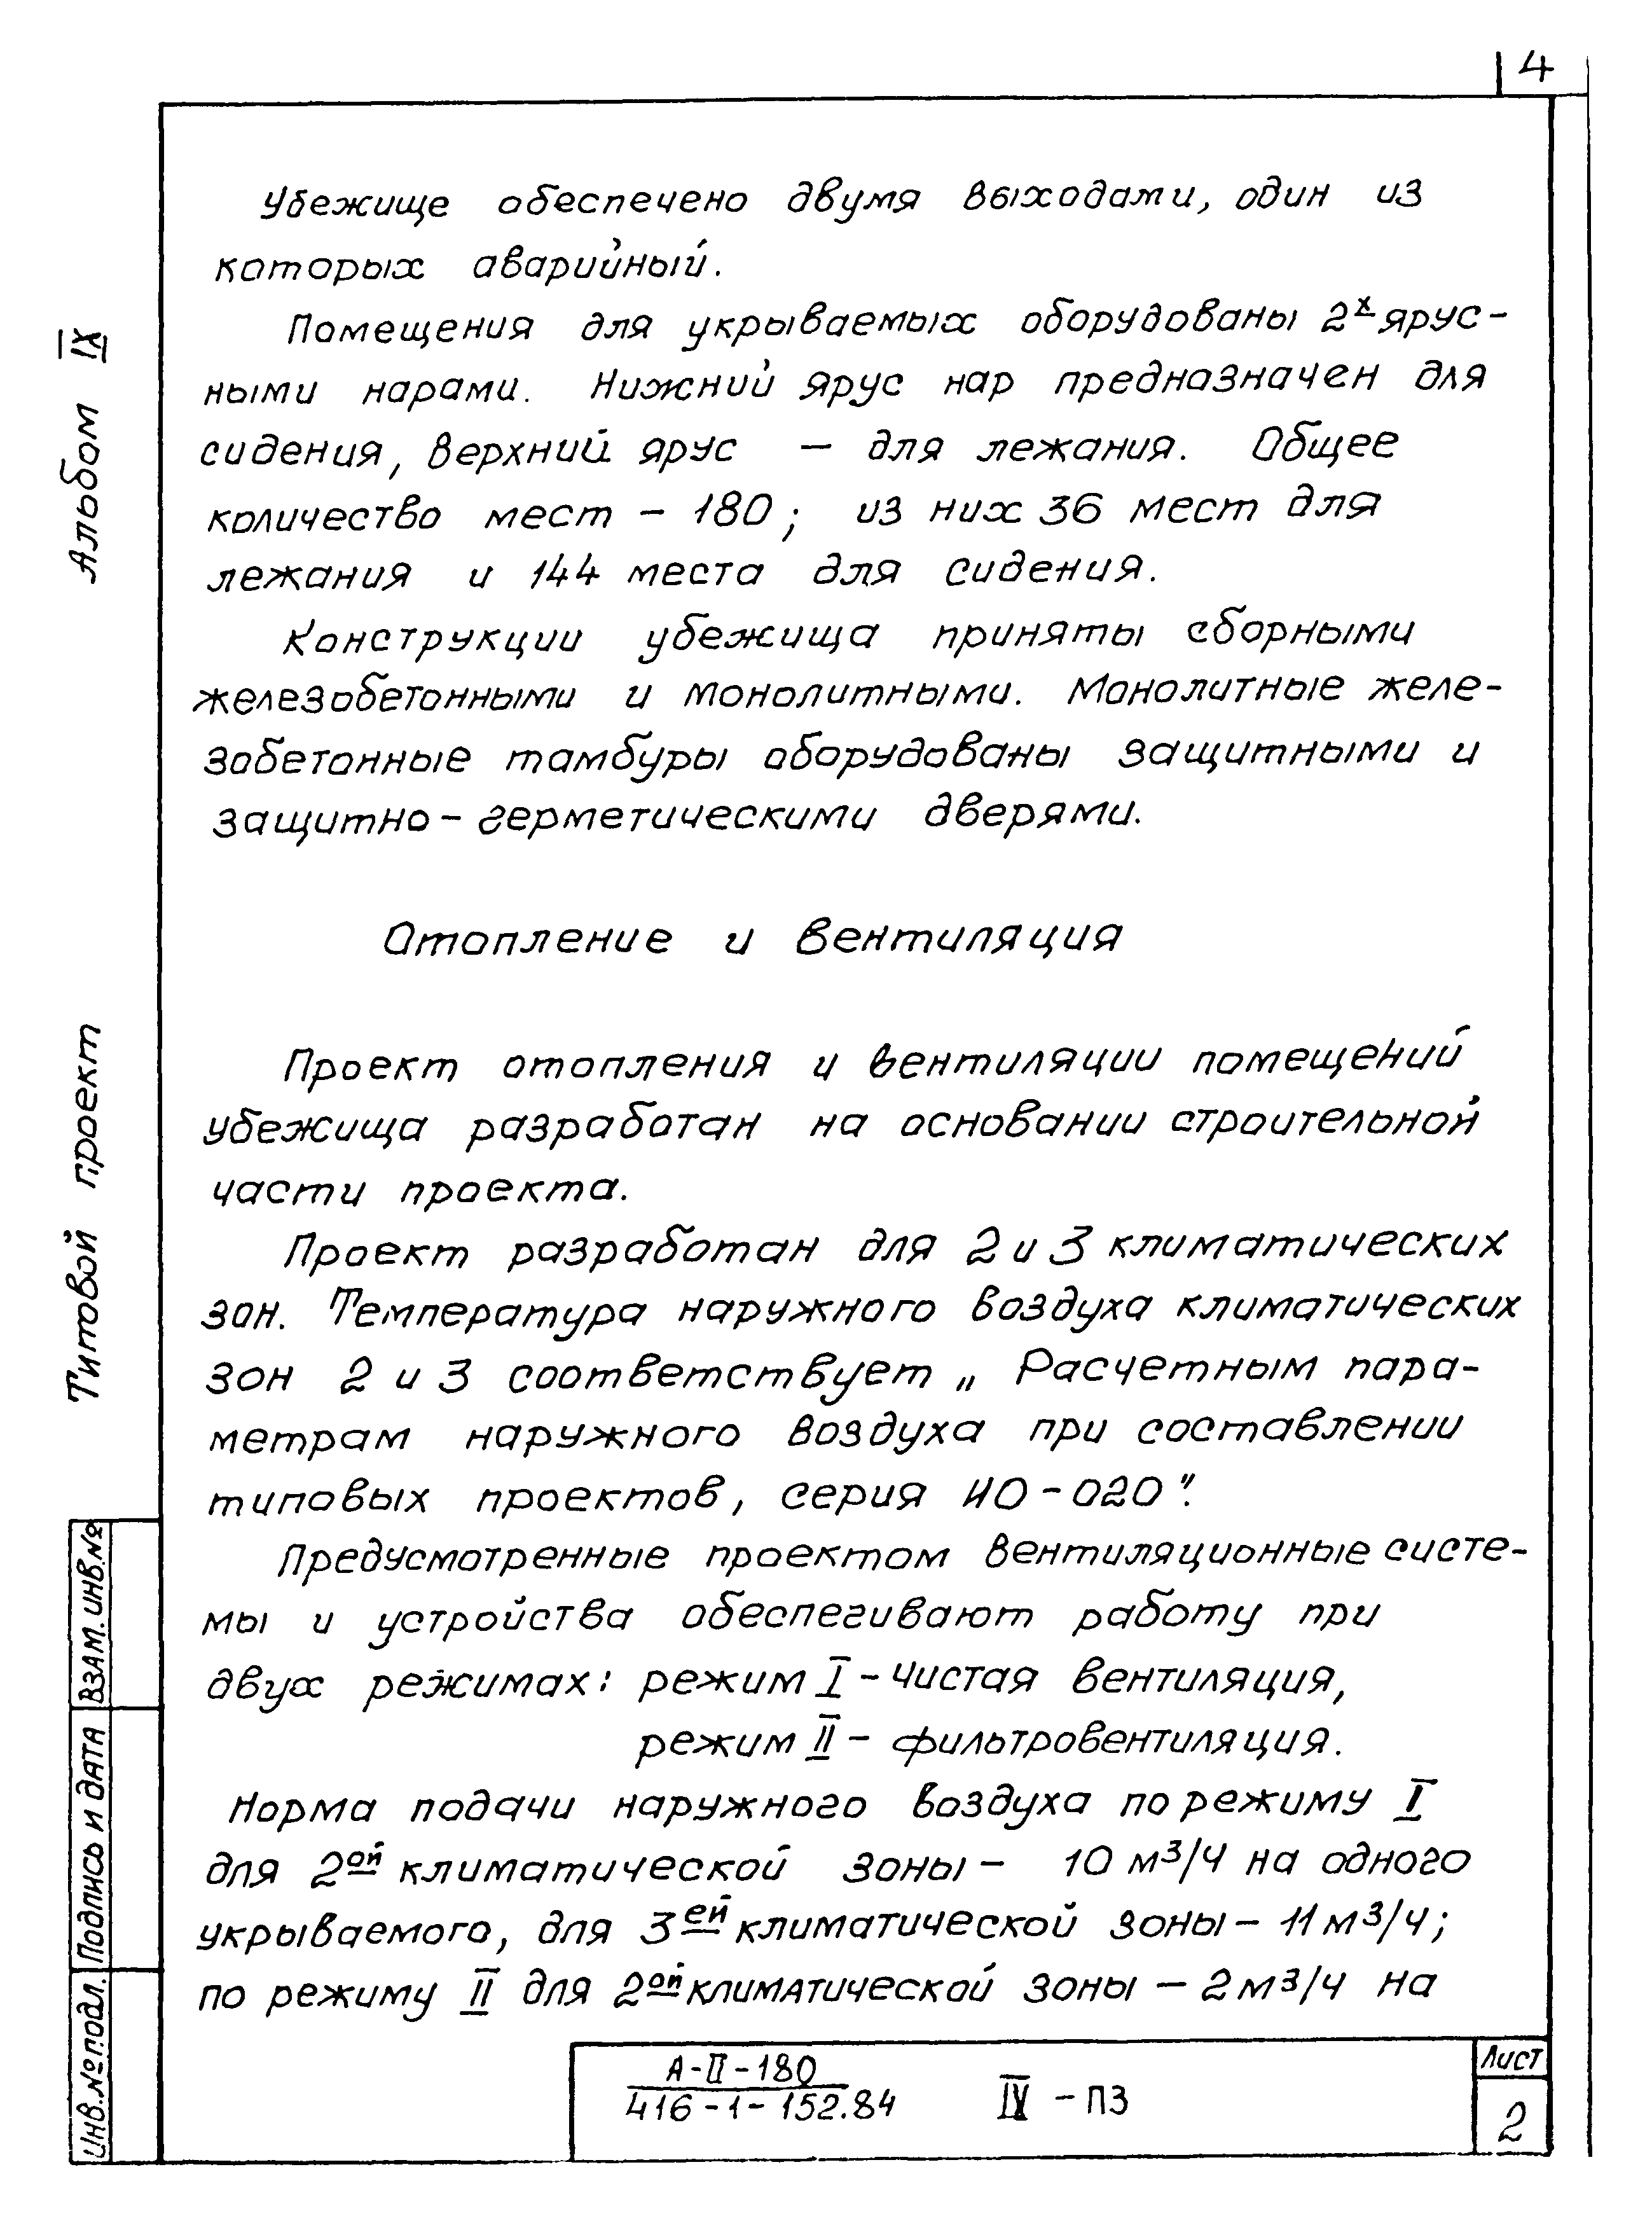 4
Убежище обеспечено двумя выходами, один из
которых аварийный.
Помещения для укрываемых оборудованы 2х ярус-
ными нарами. Нижний ярус нар предназначен для
сидения, верхний ярус – для лежания. Общее
количество мест – 180; из них 36 мест для
лежания и 144 места для сидения.
Конструкции убежища приняты сборными
железобетонными и монолитными. Монолитные желе-
зобетонные тамбуры оборудованы защитными и
защитно-герметическими дверями.
Отопление и вентиляция
Проект отопления и вентиляции помещений
убежища разработан на основании строительной
части проекта.
Проект разработан для 2 и 3 климатических
зон. Температура наружного воздуха климатических
зон 2 и 3 соответствует „Расчетным пара-
метрам наружного воздуха при составлении
типовых проектов, серия ИО-020".
Предусмотренные проектом вентиляционные систе-
мы и устройства обеспегивают работу при
двух режимах: режим I – чистая вентиляция,
режим II – фильтровентиляция.
Норма подачи наружного воздуха по режиму I
для 2ой климатической зоны – 10 м³/ч на одного
укрываемого, для 3ей климатической зоны – 11 м³/ч;
по режиму II для 2ой климатической зоны – 2 м³/ч на
Альбом IX
Типовой проект
Взам. инв.№
Подпись и дата
Инв.№ подл.
А-II-180
416-1-152.84
IX – ПЗ
Лист
2